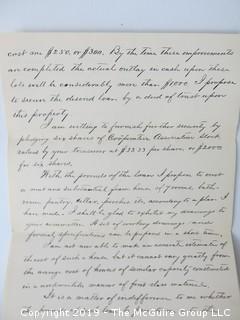 cost me $250. or $300. By the time these improvements
are completed the actual outlay in cash upon these
lots will be considerably more than $1000. I propose
to secure the desired loan by a deed of trust upon
this property.
I am willing to furnish further security, by
pledging six shares of Coöperative Association Stock
valued by your treasurer at $33.33 per share, or $2000
for six shares.
With the proceeds of the loan I propose to erect
a neat and substantial frame house of 7 rooms, bath-
room, pantry, cellar, porches etc, according to a plan I
have made. I shall be glad to exhibit my drawings to
your committee. A set of working drawings and
formal specifications can be prepared in a short time.
I am not able to make an accurate estimate of
the cost of such a house, but it cannot vary greatly from
the average cost of houses of similar capacity constructed
in a workmanlike manner of first class materials.
It is a matter of indifference to me whether
Copyright 2019 - The McGuire Group LLC